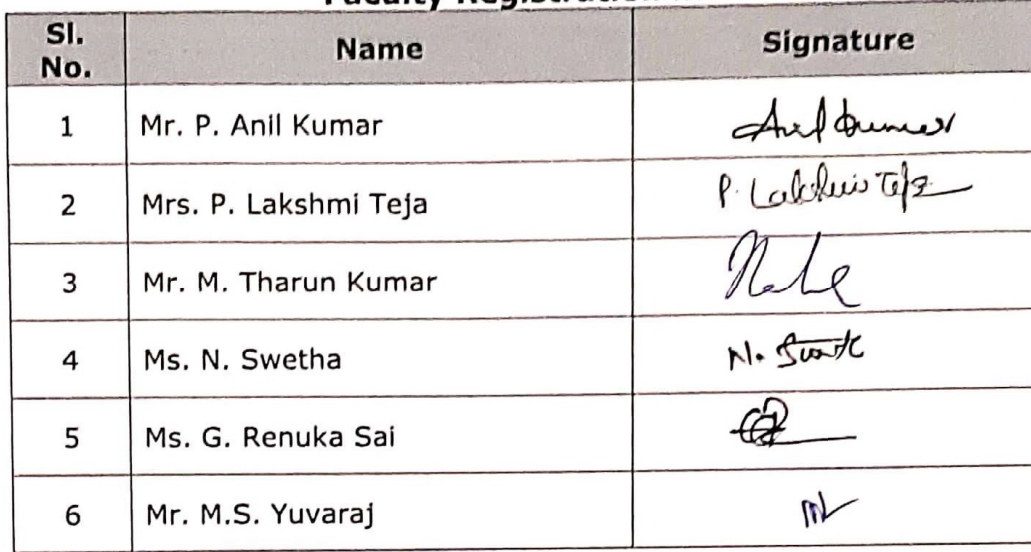 Faculty Registration
Sl. No. Name Signature
1 Mr. P. Anil Kumar Anil Kumar
2 Mrs. P. Lakshmi Teja P. Lakshmi Teja
3 Mr. M. Tharun Kumar
4 Ms. N. Swetha N.
5 Ms. G. Renuka Sai
6 Mr. M.S. Yuvaraj